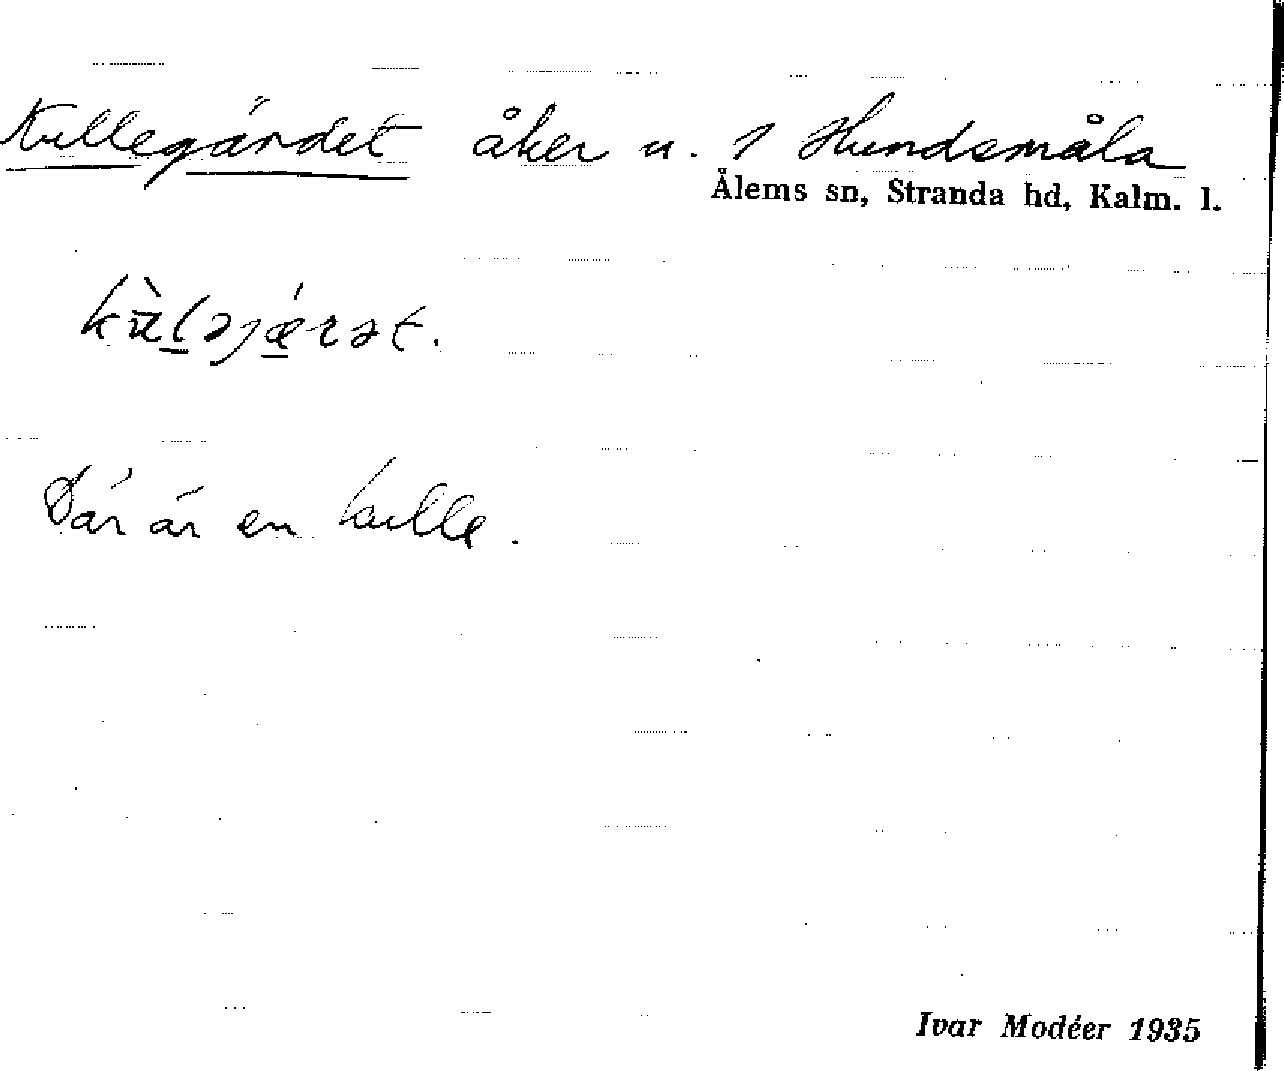 Kullegärdet åker u. 1 Hundsmåla
Ålems sn, Stranda hd, Kalm. l.
Där är en kulle.
Ivar Modéer 1935